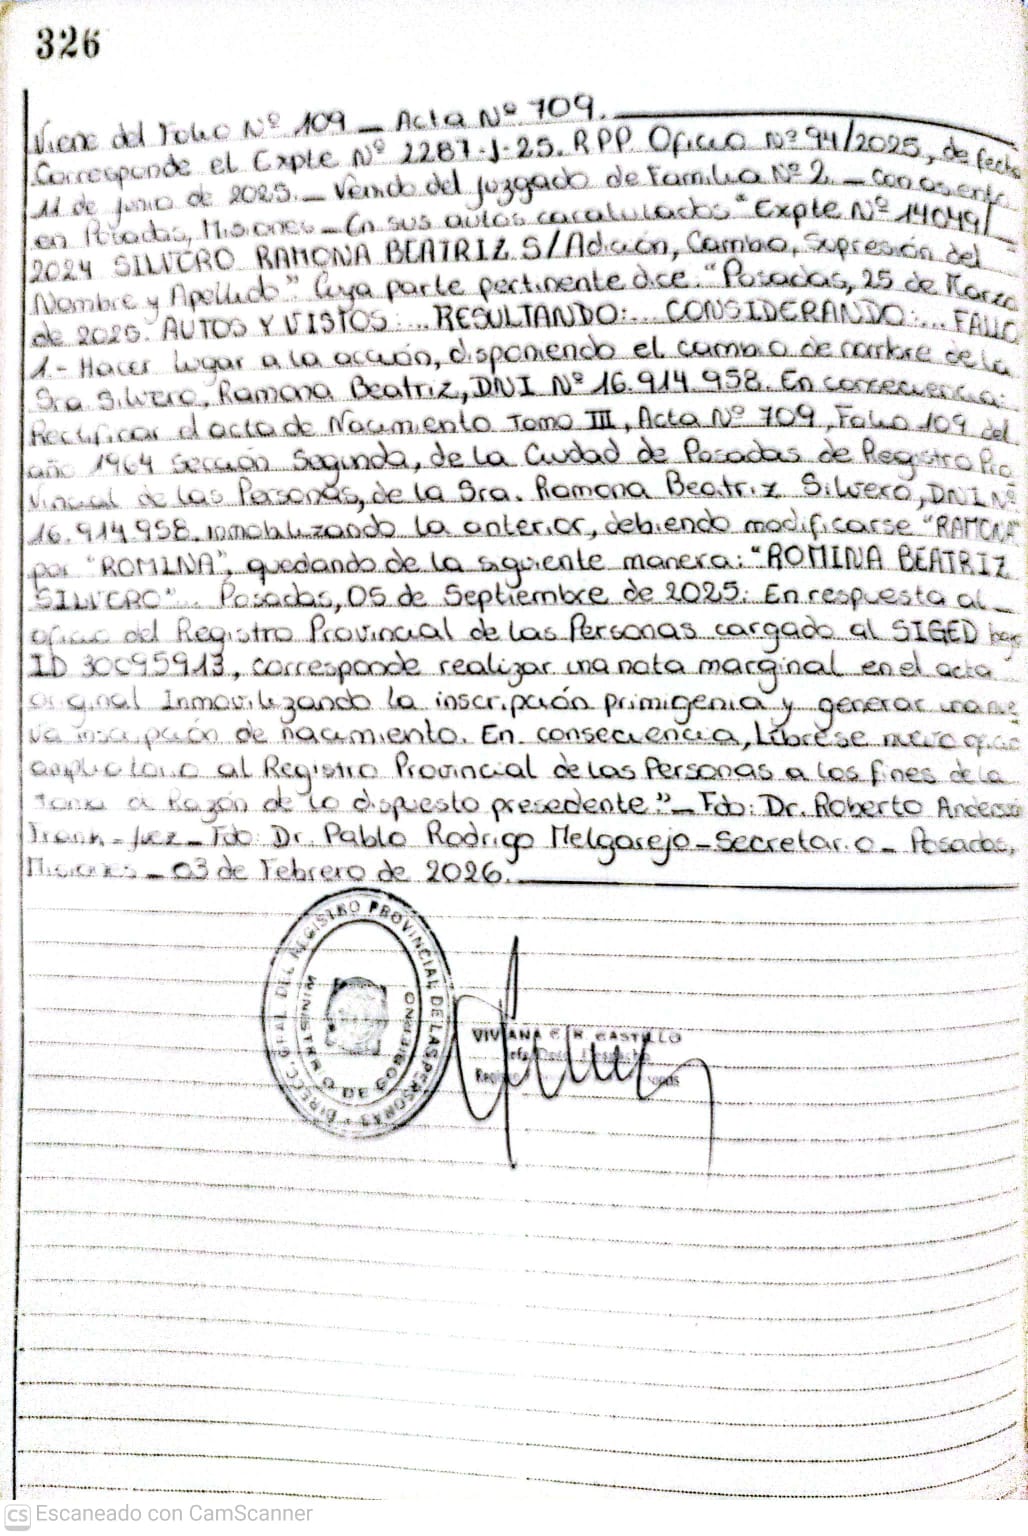 326
Viene del Folio Nº 109 _ Acta Nº 709.
Corresponde el Expte Nº 2287-J-25. RPP. Oficio Nº 94/2025, de fecha
11 de junio de 2025._ Venido del juzgado de Familia Nº 2 _ con asento
en Posadas, Misiones _ En sus autos caratulados "Expte Nº 14049/
2024 SILVERO RAMONA BEATRIZ S/Adición, Cambio, Supresión del
Nombre y Apellido" Cuya parte pertinente dice: "Posadas, 25 de Marzo
de 2025. AUTOS Y VISTOS:... RESULTANDO:... CONSIDERANDO:... FALLO
1.- Hacer lugar a la acción, disponiendo el cambio de nombre de la
Sra Silvero, Ramona Beatriz, DNI Nº 16.914.958. En consecuencia:
Rectificar el acta de Nacimiento Tomo III, Acta Nº 709, Folio 109 del
año 1964 Sección Segunda, de la Ciudad de Posadas de Registro Pro
vincial de las Personas, de la Sra. Ramona Beatriz Silvero, DNI Nº
16.914.958. inmobilizando la anterior, debiendo modificarse "RAMONA"
por "ROMINA", quedando de la siguiente manera: "ROMINA BEATRIZ
SILVERO". Posadas, 05 de Septiembre de 2025. En respuesta al
oficio del Registro Provincial de las Personas cargado al SIGED bajo
ID 30095913, corresponde realizar una nota marginal en el acta
original Inmovilizando la inscripción primigenia y generar una nue
va inscripción de nacimiento. En consecuencia, Líbrese nuevo oficio
ampliatorio al Registro Provincial de las Personas a los fines de la
Toma de Razón de lo dispuesto presedente."_ Fdo: Dr. Roberto Anderson
Frank - Juez _ Fdo: Dr. Pablo Rodrigo Melgarejo _ Secretario _ Posadas,
Misiones _ 03 de Febrero de 2026.
DIRECC. GRAL DEL REGISTRO PROVINCIAL DE LAS PERSONAS
MINISTRO DE GOBIERNO
VIVIANA C. R. CASTILLO
Jefa Dpto. Despacho
CS Escaneado con CamScanner